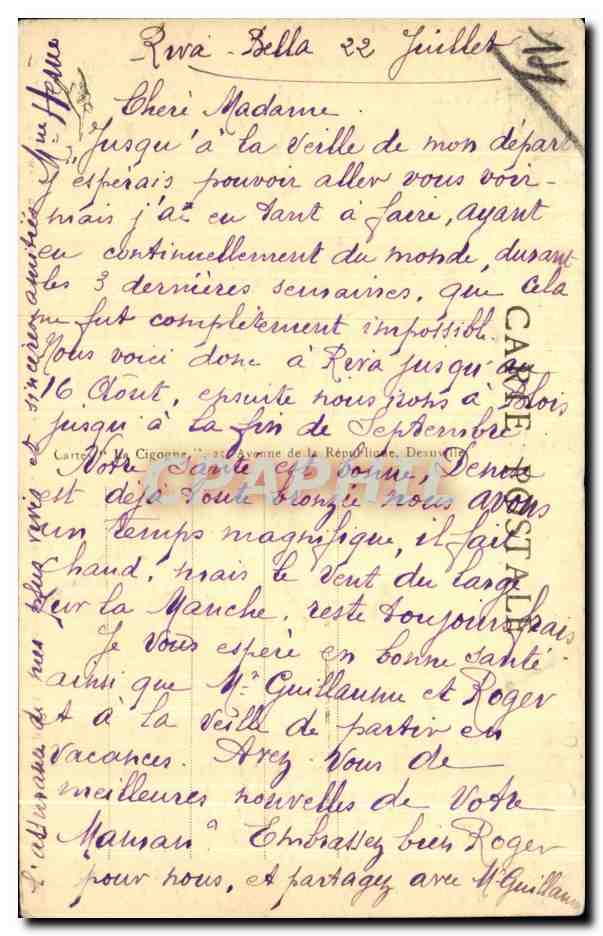 Riva-Bella 22 Juillet
Cheré Madame.
Jusqu'à la veille de mon départ
j'espérais pouvoir aller vous voir-
mais j'ai eu tant à faire, ayant
eu continuellement du monde, durant
les 3 dernières semaines, que cela
me fut complètement impossible.
Nous voici donc à Riva jusqu'au
16 Août, ensuite nous irons à Blois
jusqu'à la fin de Septembre
Cartes "La Cigogne", Avenue de la République, Deauville
Notre Santé est bonne, Denise
est déjà toute bronzée nous avons
un temps magnifique, il fait
chaud, mais le vent du large
sur la Manche, reste toujours frais.
Je vous espère en bonne santé
ainsi que Mr Guillaume et Roger
et à la veille de partir en
vacances. Avez Vous de
meilleures nouvelles de Votre
Maman? Embrassez bien Roger
pour nous, et partagez avec Mr Guillaume
l'assurance de mes plus vives et sincères amitiés
CARTE POSTALE
CPAPHIL